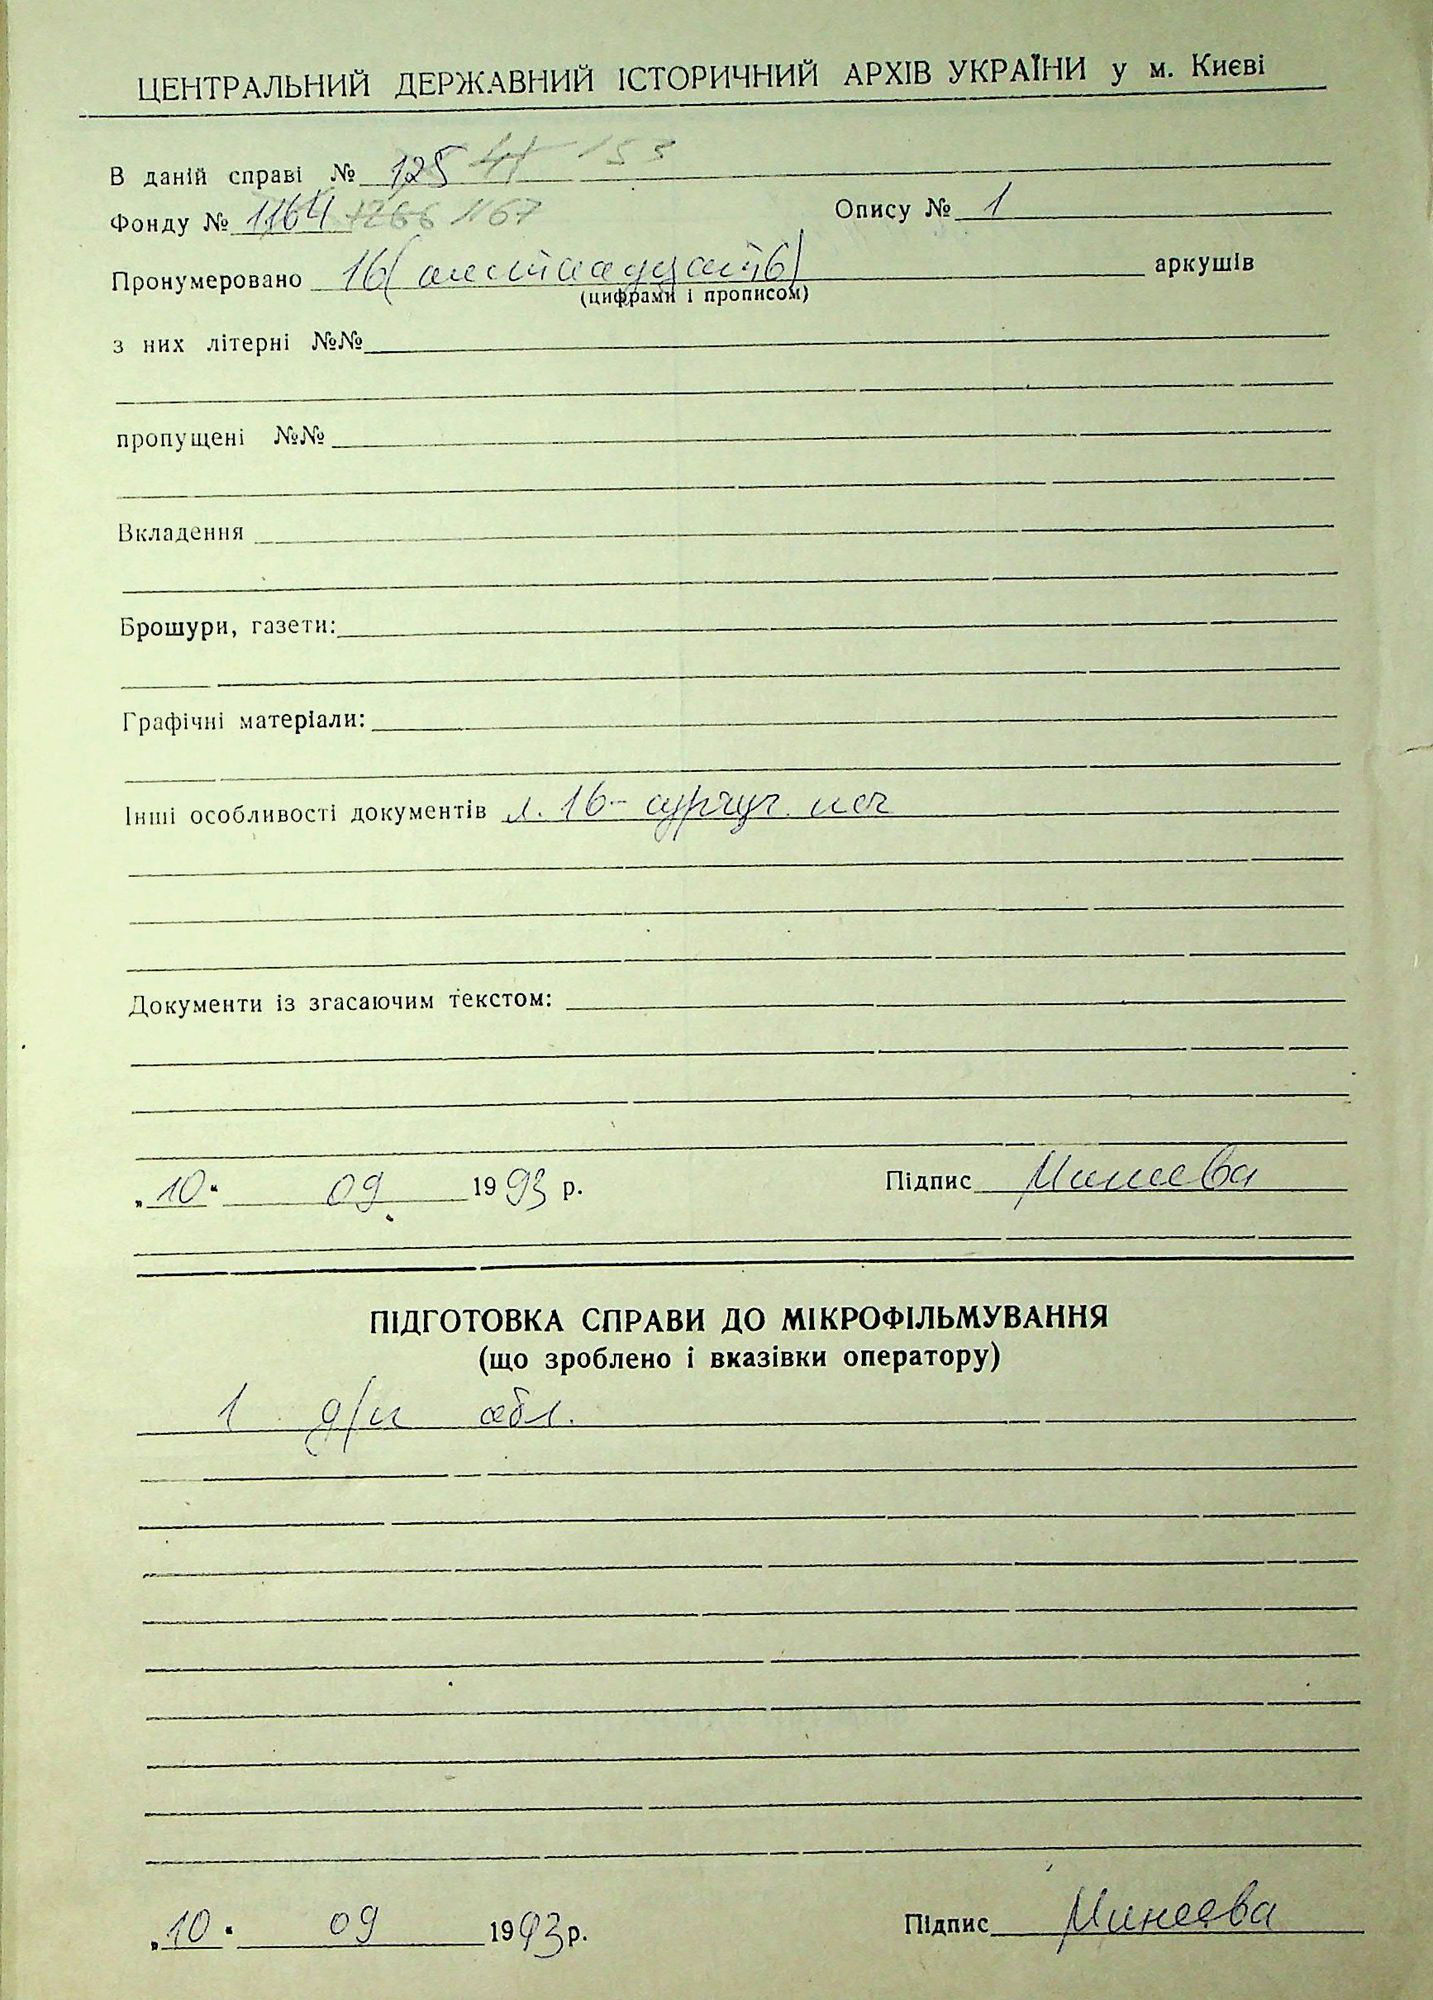 ЦЕНТРАЛЬНИЙ ДЕРЖАВНИЙ ІСТОРИЧНИЙ АРХІВ УКРАЇНИ у м. Києві
В даній справі № 125 41 153
Фонду № 1164 1266 1167 Опису № 1
Пронумеровано 16 (шістнадцять) аркушів
(цифрами і прописом)
з них літерні №№
пропущені №№
Вкладення
Брошури, газети:
Графічні матеріали:
Інші особливості документів л. 16 - сургуч. печ
Документи із згасаючим текстом:
„10“ 09 1993 р. Підпис Минеева
ПІДГОТОВКА СПРАВИ ДО МІКРОФІЛЬМУВАННЯ
(що зроблено і вказівки оператору)
1 д/и обл.
„10“ 09 1993 р. Підпис Минеева